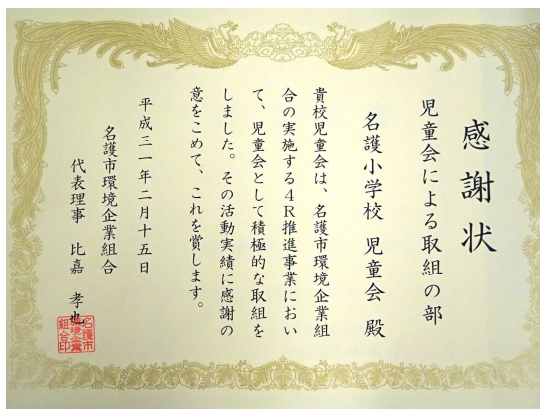 感謝状
児童会による取組の部
名護小学校 児童会 殿
貴校児童会は、名護市環境企業組
合の実施する4R推進事業におい
て、児童会として積極的な取組を
しました。その活動実績に感謝の
意をこめて、これを賞します。
平成三一年二月十五日
名護市環境企業組合
代表理事 比嘉 孝也
名護市
環境企業
組合印